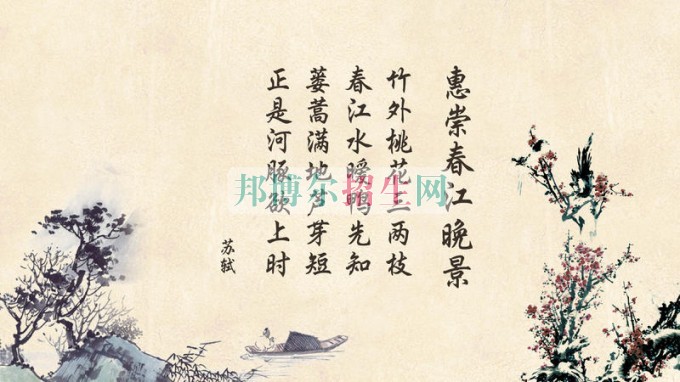 惠崇春江晚景
竹外桃花三两枝
春江水暖鸭先知
蒌蒿满地芦芽短
正是河豚欲上时
苏轼
邦博尔招生网